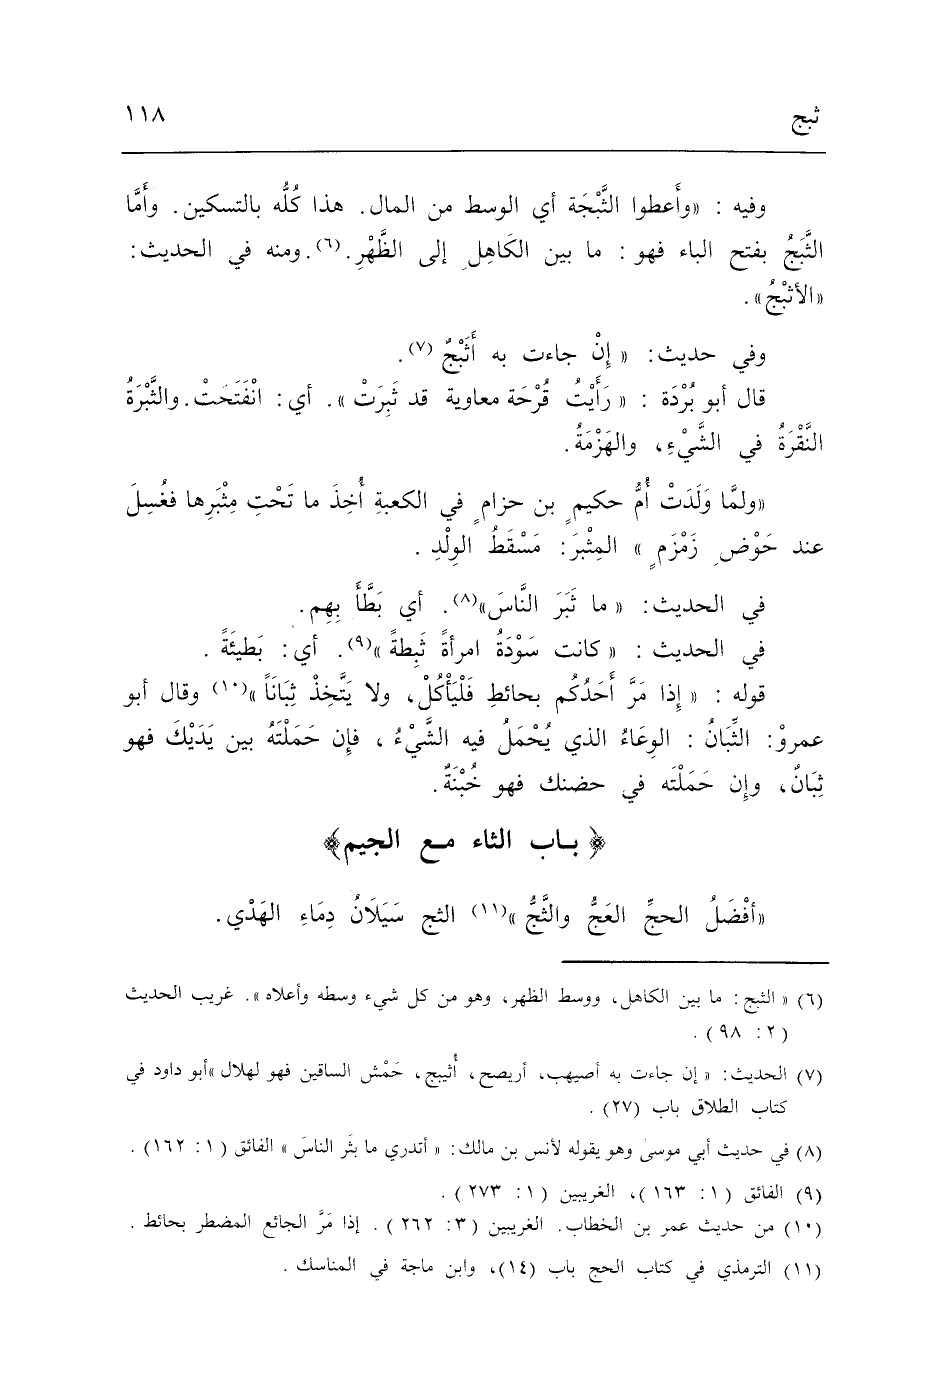 ثبج
١١٨
وفيه : «وأَعطوا الثَّبْجَة أي الوسط من المال. هذا كُلُّه بالتسكين. وأَمَّا
الثَّبَجُ بفتح الباء فهو : ما بين الكَاهِلِ إلى الظَّهْرِ.(٦).ومنه في الحديث:
«الأثْبَجُ» .
وفي حديث: « إِنْ جاءت به أَثَبْجٌ (٧).
قال أبو بُرْدَة : « رَأَيْتُ قُرْحَة معاوية قد ثَبِرَتْ ». أي: انْفَتَحَتْ.والثَّبْرَةُ
النَّقْرَةُ في الشَّيْءِ، والهَزْمَةُ.
«ولمَّا وَلَدَتْ أُمُّ حكيمٍ بن حزامٍ في الكعبةِ أُخِذَ ما تَحْتِ مِثْبَرِها فغُسِلَ
عند حَوْضِ زَمْزَمٍ » المِثْبرَ: مَسْقَطُ الوِلْدِ .
في الحديث: « ما ثَبَرَ النَّاسَ»(٨). أي بَطَّأَ بِهِم.
في الحديث : « كانت سَوْدَةُ امرأةً ثَبِطةً »(٩). أي: بَطيئَةً .
قوله : « إِذا مَرَّ أَحَدُكُم بحائطِ فَلْيَأْكُلْ، ولا يَتَّخِذْ ثِبَاتَاً »(١٠) وقال أبو
عمروْ: الثِّبَانُ : الوِعَاءُ الذي يُحْمَلُ فيه الشَّيْءُ ، فإِن حَمَلْتَهُ بين يَدَيْكَ فهو
ثِبَانٌ، وإِن حَمَلْتَه في حضنك فهو خُبْنَةٌ.
﴿ بـاب الثاء مـع الجيم﴾
«أَفْضَلُ الحجِّ العَجُّ والثَّجُّ »(١١) الثج سَيَلَانُ دِمَاءِ الهَدْي.
(٦) « الثبج: ما بين الكاهل، ووسط الظهر، وهو من كل شيء وسطه وأعلاه ». غريب الحديث
(٢: ٩٨) .
(٧) الحديث: « إن جاءت به أصيهب، أريصح، أُثيبج، حَمْش الساقين فهو لهلال »أبو داود في
كتاب الطلاق باب (٢٧) .
(٨) في حديث أبي موسى وهو يقوله لأنس بن مالك: « أتدري ما بثَر الناسَ » الفائق (١: ١٦٢) .
(٩) الفائق (١: ١٦٣)، الغريبين (١: ٢٧٣) .
(١٠) من حديث عمر بن الخطاب. الغريبين (٣: ٢٦٢) . إذا مَرَّ الجائع المضطر بحائط .
(١١) الترمذي في كتاب الحج باب (١٤)، وابن ماجة في المناسك .